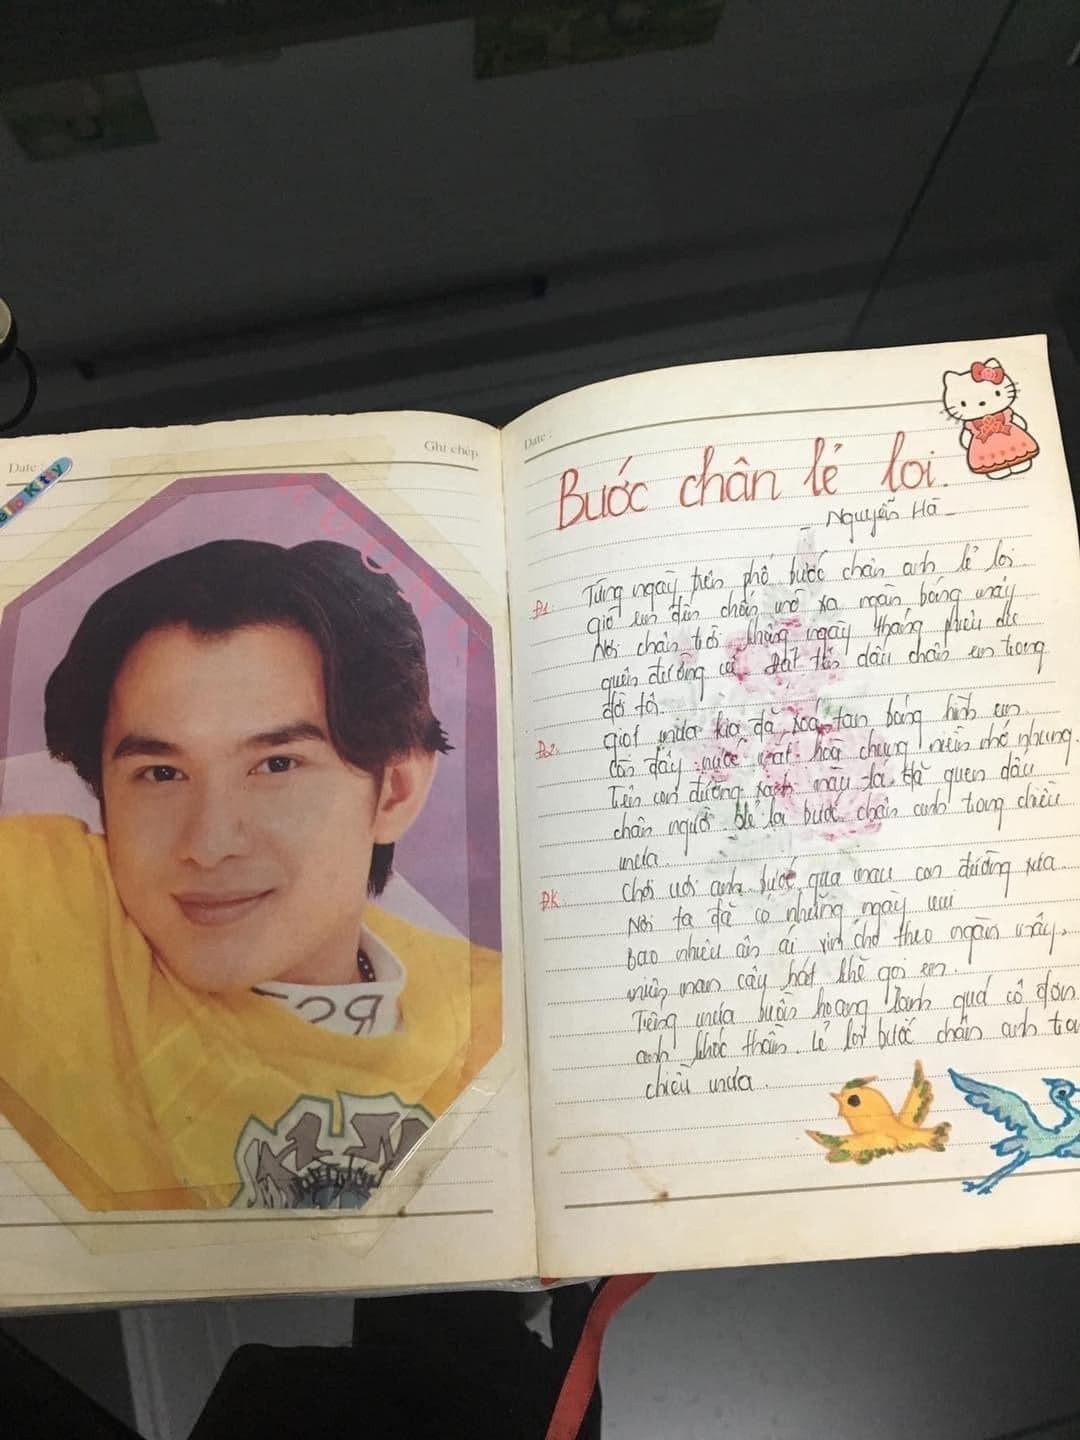 Date :
Ghi chép
ello Kitty
Date :
Bước chân lẻ loi.
_ Nguyễn Hà _
Đ1: Từng ngày trên phố bước chân anh lẻ loi
giờ em đến chốn mô xa ngàn bóng mây
Nơi chân trời tháng ngày phiêu
quên đường về dấu chân em trong
đời tôi.
Đ2: giọt mưa kia đã xoá tan bóng hình em
còn đây nước mắt hoà chung niềm nhớ nhung.
Trên con đường xanh màu lá đã quen dấu
chân người. lẻ loi bước chân anh trong chiều
mưa.
ĐK: Chơi vơi anh bước qua mau con đường xưa
Nơi ta đã có những ngày vui
bao nhiêu ân ái xin cho theo ngàn mây,
miên man câu hát khẽ gọi em.
Tiếng mưa buồn hoang lạnh quá cô đơn
anh khóc thầm. Lẻ loi bước chân anh tro
chiều mưa.